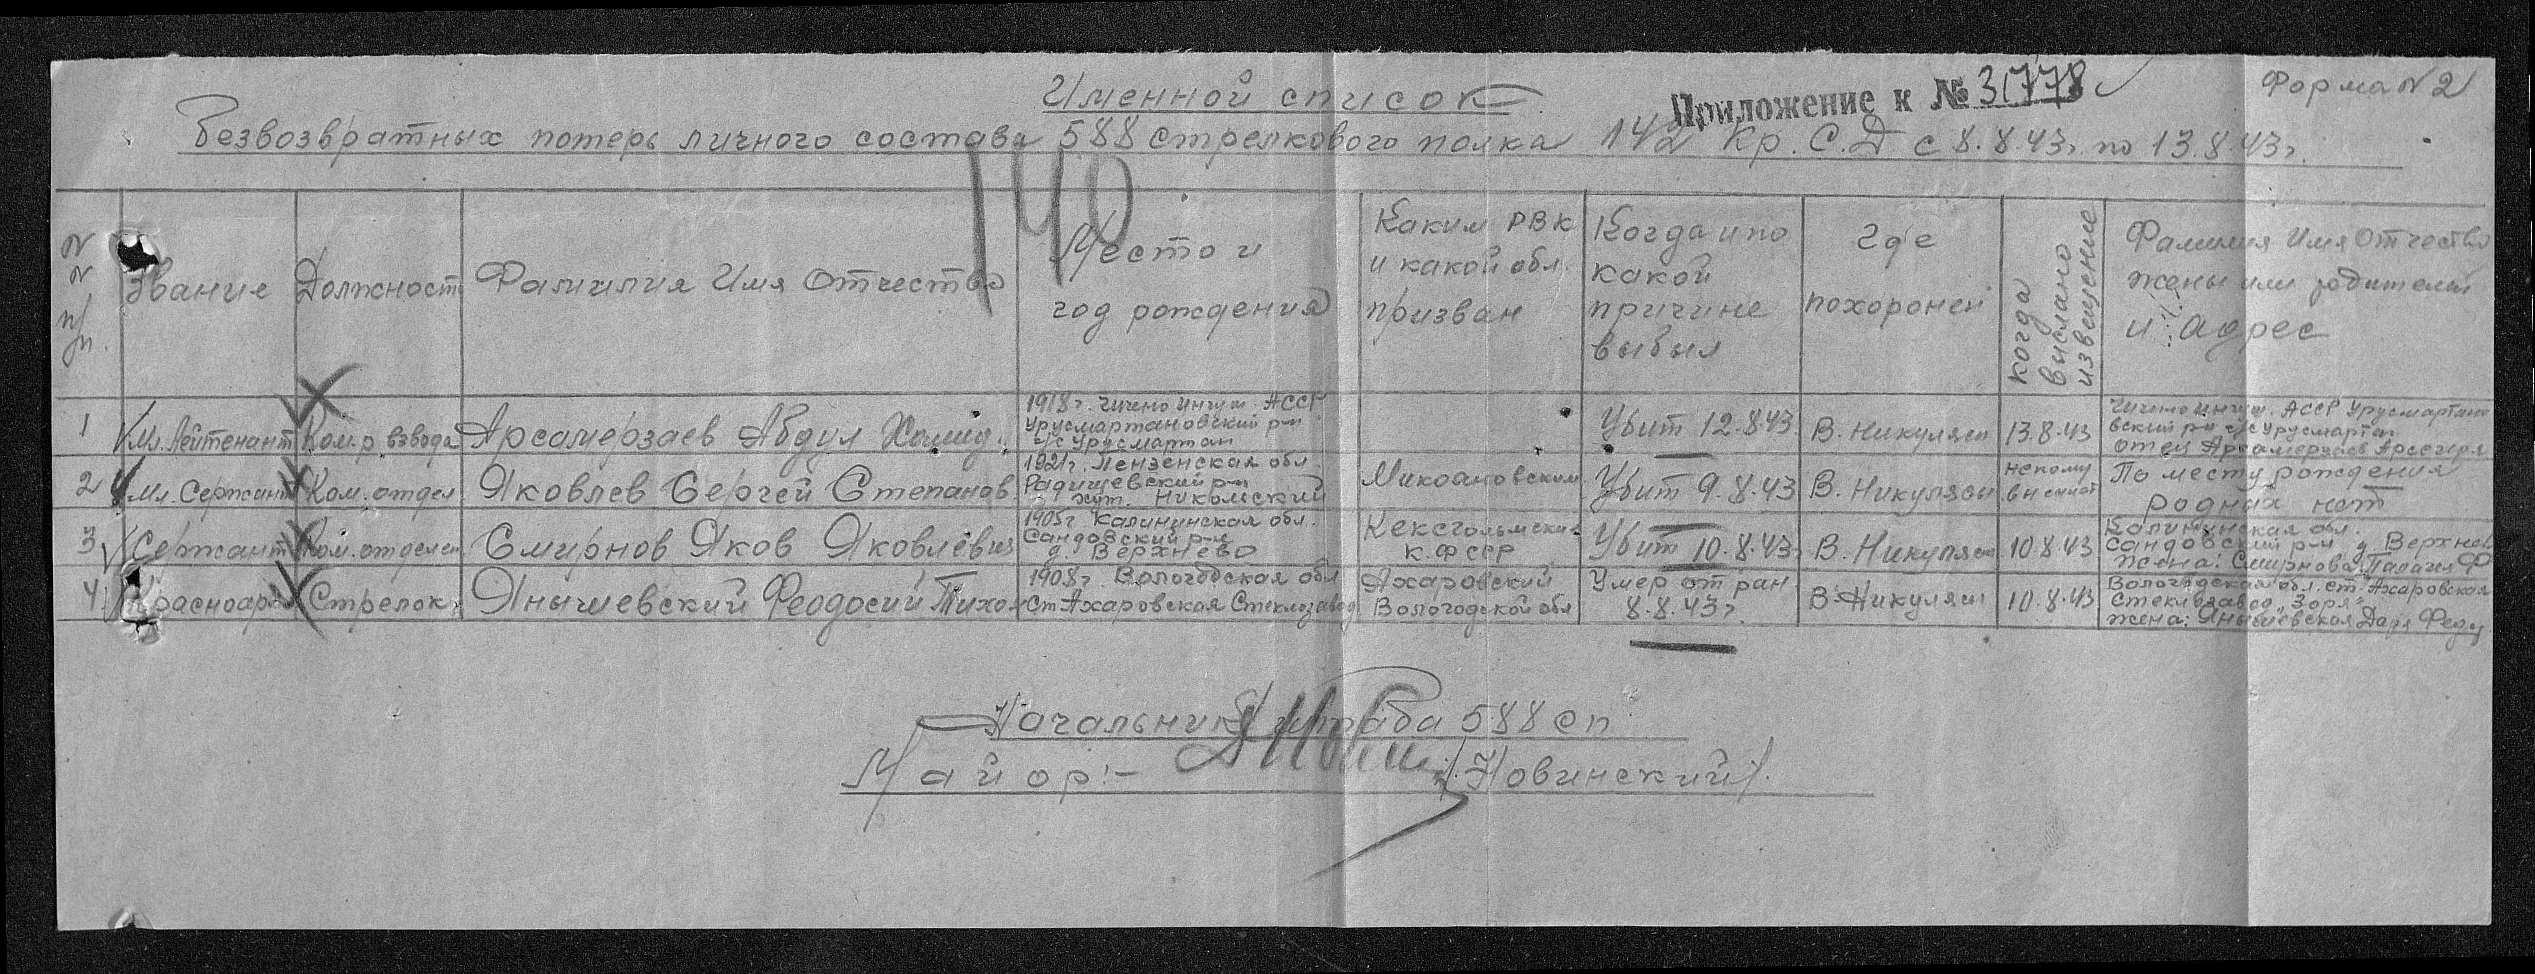 Именной список
Приложение к № 31778
Форма N 2
Безвозвратных потерь личного состава 588 стрелкового полка 142 Кр. С.Д с 8.8.43г. по 13.8.43г.
140
N N п/п.
Звание
Должност
Фамилия Имя Отчество
Место и
год рождения
Каким РВК
и какой обл.
призван
Когда и по
какой
причине
выбыл
Где
похоронен
когда
выслано
извещение
Фамилия Имя Отчество
жены или родителей
и адрес
1
Мл. Лейтенант
Ком-р взвода
Арсамерзаев Абдул Хамид.
1918г. Чичено Ингуш. АССР
Урусмартановский р-н
с/с Урусмартан
Убит 12.8.43
В. Никуляси
13.8.43
Чичено Ингуш. АССР Урусмартано
вский р-н с/с Урусмартан
отец Арсамерзаев
2
Мл. Сержант
Ком. отдел
Яковлев Сергей Степанов
1921г. Пензенская обл.
Радищевский р-н
хут. Никольский
Микоановским
Убит 9.8.43
В. Никуляси
некому
По месту рождения
родных нет
3
Сержант
Ком. отделен
Смирнов Яков Яковлевич
1905г Калининская обл.
Сандовский р-н
д. Верхнево
Кексгольмским
К.Ф ССР
Убит 10.8.43г
В. Никуляси
10.8.43
Калининская обл.
Сандовский р-н д. Верхнев
Жена: Смирнова Палагея Ф
4
Красноарм
Стрелок
Янышевский Феодосий Тихон
1908г. Вологодская обл
Ст Ахаровская Стеклозавод
Ахаровский
Вологодской обл
Умер от ран
8.8.43г.
В. Никуляси
10.8.43
Вологодская обл. ст. Ахаровская
Стеклозавод "Заря"
жена: Янышевская Даря Фед
Начальник штаба 588 сп
Майор:- /Новинский/.